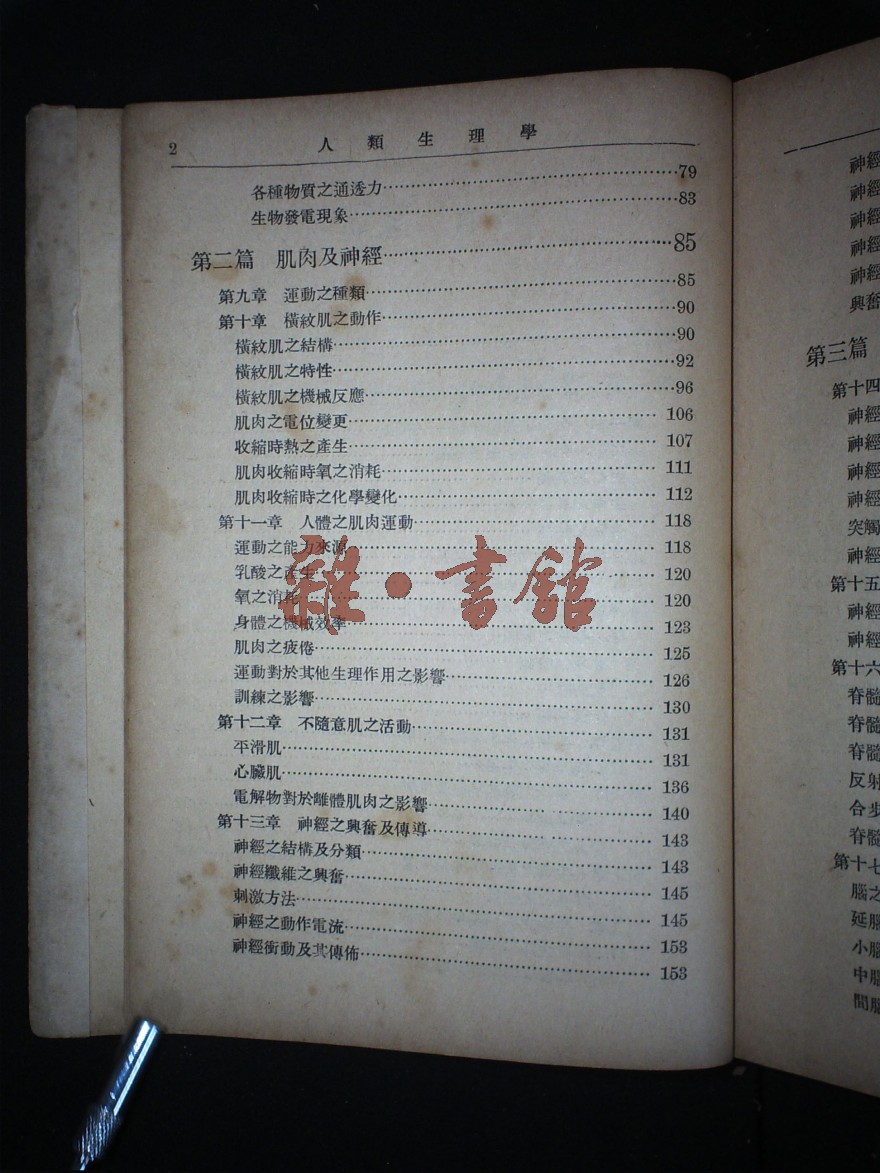 2 人類生理學
各種物質之通透力……79
生物發電現象……83
第二篇 肌肉及神經……85
第九章 運動之種類……85
第十章 橫紋肌之動作……90
橫紋肌之結構……90
橫紋肌之特性……92
橫紋肌之機械反應……96
肌肉之電位變更……106
收縮時熱之產生……107
肌肉收縮時氧之消耗……111
肌肉收縮時之化學變化……112
第十一章 人體之肌肉運動……118
運動之能力來源……118
乳酸之產生……120
氧之消耗……120
身體之機械效率……123
肌肉之疲倦……125
運動對於其他生理作用之影響……126
訓練之影響……130
第十二章 不隨意肌之活動……131
平滑肌……131
心臟肌……136
電解物對於離體肌肉之影響……140
第十三章 神經之興奮及傳導……143
神經之結構及分類……143
神經纖維之興奮……145
刺激方法……145
神經之動作電流……153
神經衝動及其傳佈……153
雜·書館
神經
神經
神經
神經
神經
興奮
第三篇
第十四
神經
神經
神經
神經
突觸
神經
第十五
神經
神經
第十六
脊髓
脊髓
脊髓
反射
合步
脊髓
第十七
腦之
延腦
小腦
中腦
間腦